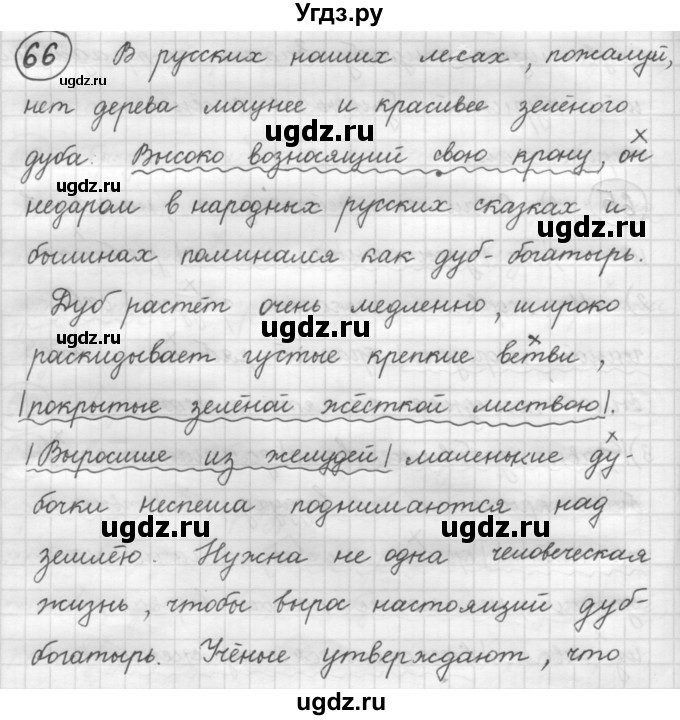 Угдз.ру
66 В русских наших лесах, пожалуй,
нет дерева мощнее и красивее зелёного
дуба. Высоко возносящий свою крону, он
недаром в народных русских сказках и
былинах поминался как дуб-богатырь.
Дуб растёт очень медленно, широко
раскидывает густые крепкие ветви,
|покрытые зелёной жёсткой листвою|.
|Выросшие из желудей| маленькие ду-
бочки неспеша поднимаются над
землёю. Нужна не одна человеческая
жизнь, чтобы вырос настоящий дуб-
богатырь. Учёные утверждают, что
ugdz.ru
ugdz.ru
ugdz.ru
ugdz.ru
ugdz.ru
ugdz.ru
ugdz.ru
ugdz.ru
ugdz.ru
ugdz.ru
ugdz.ru
ugdz.ru